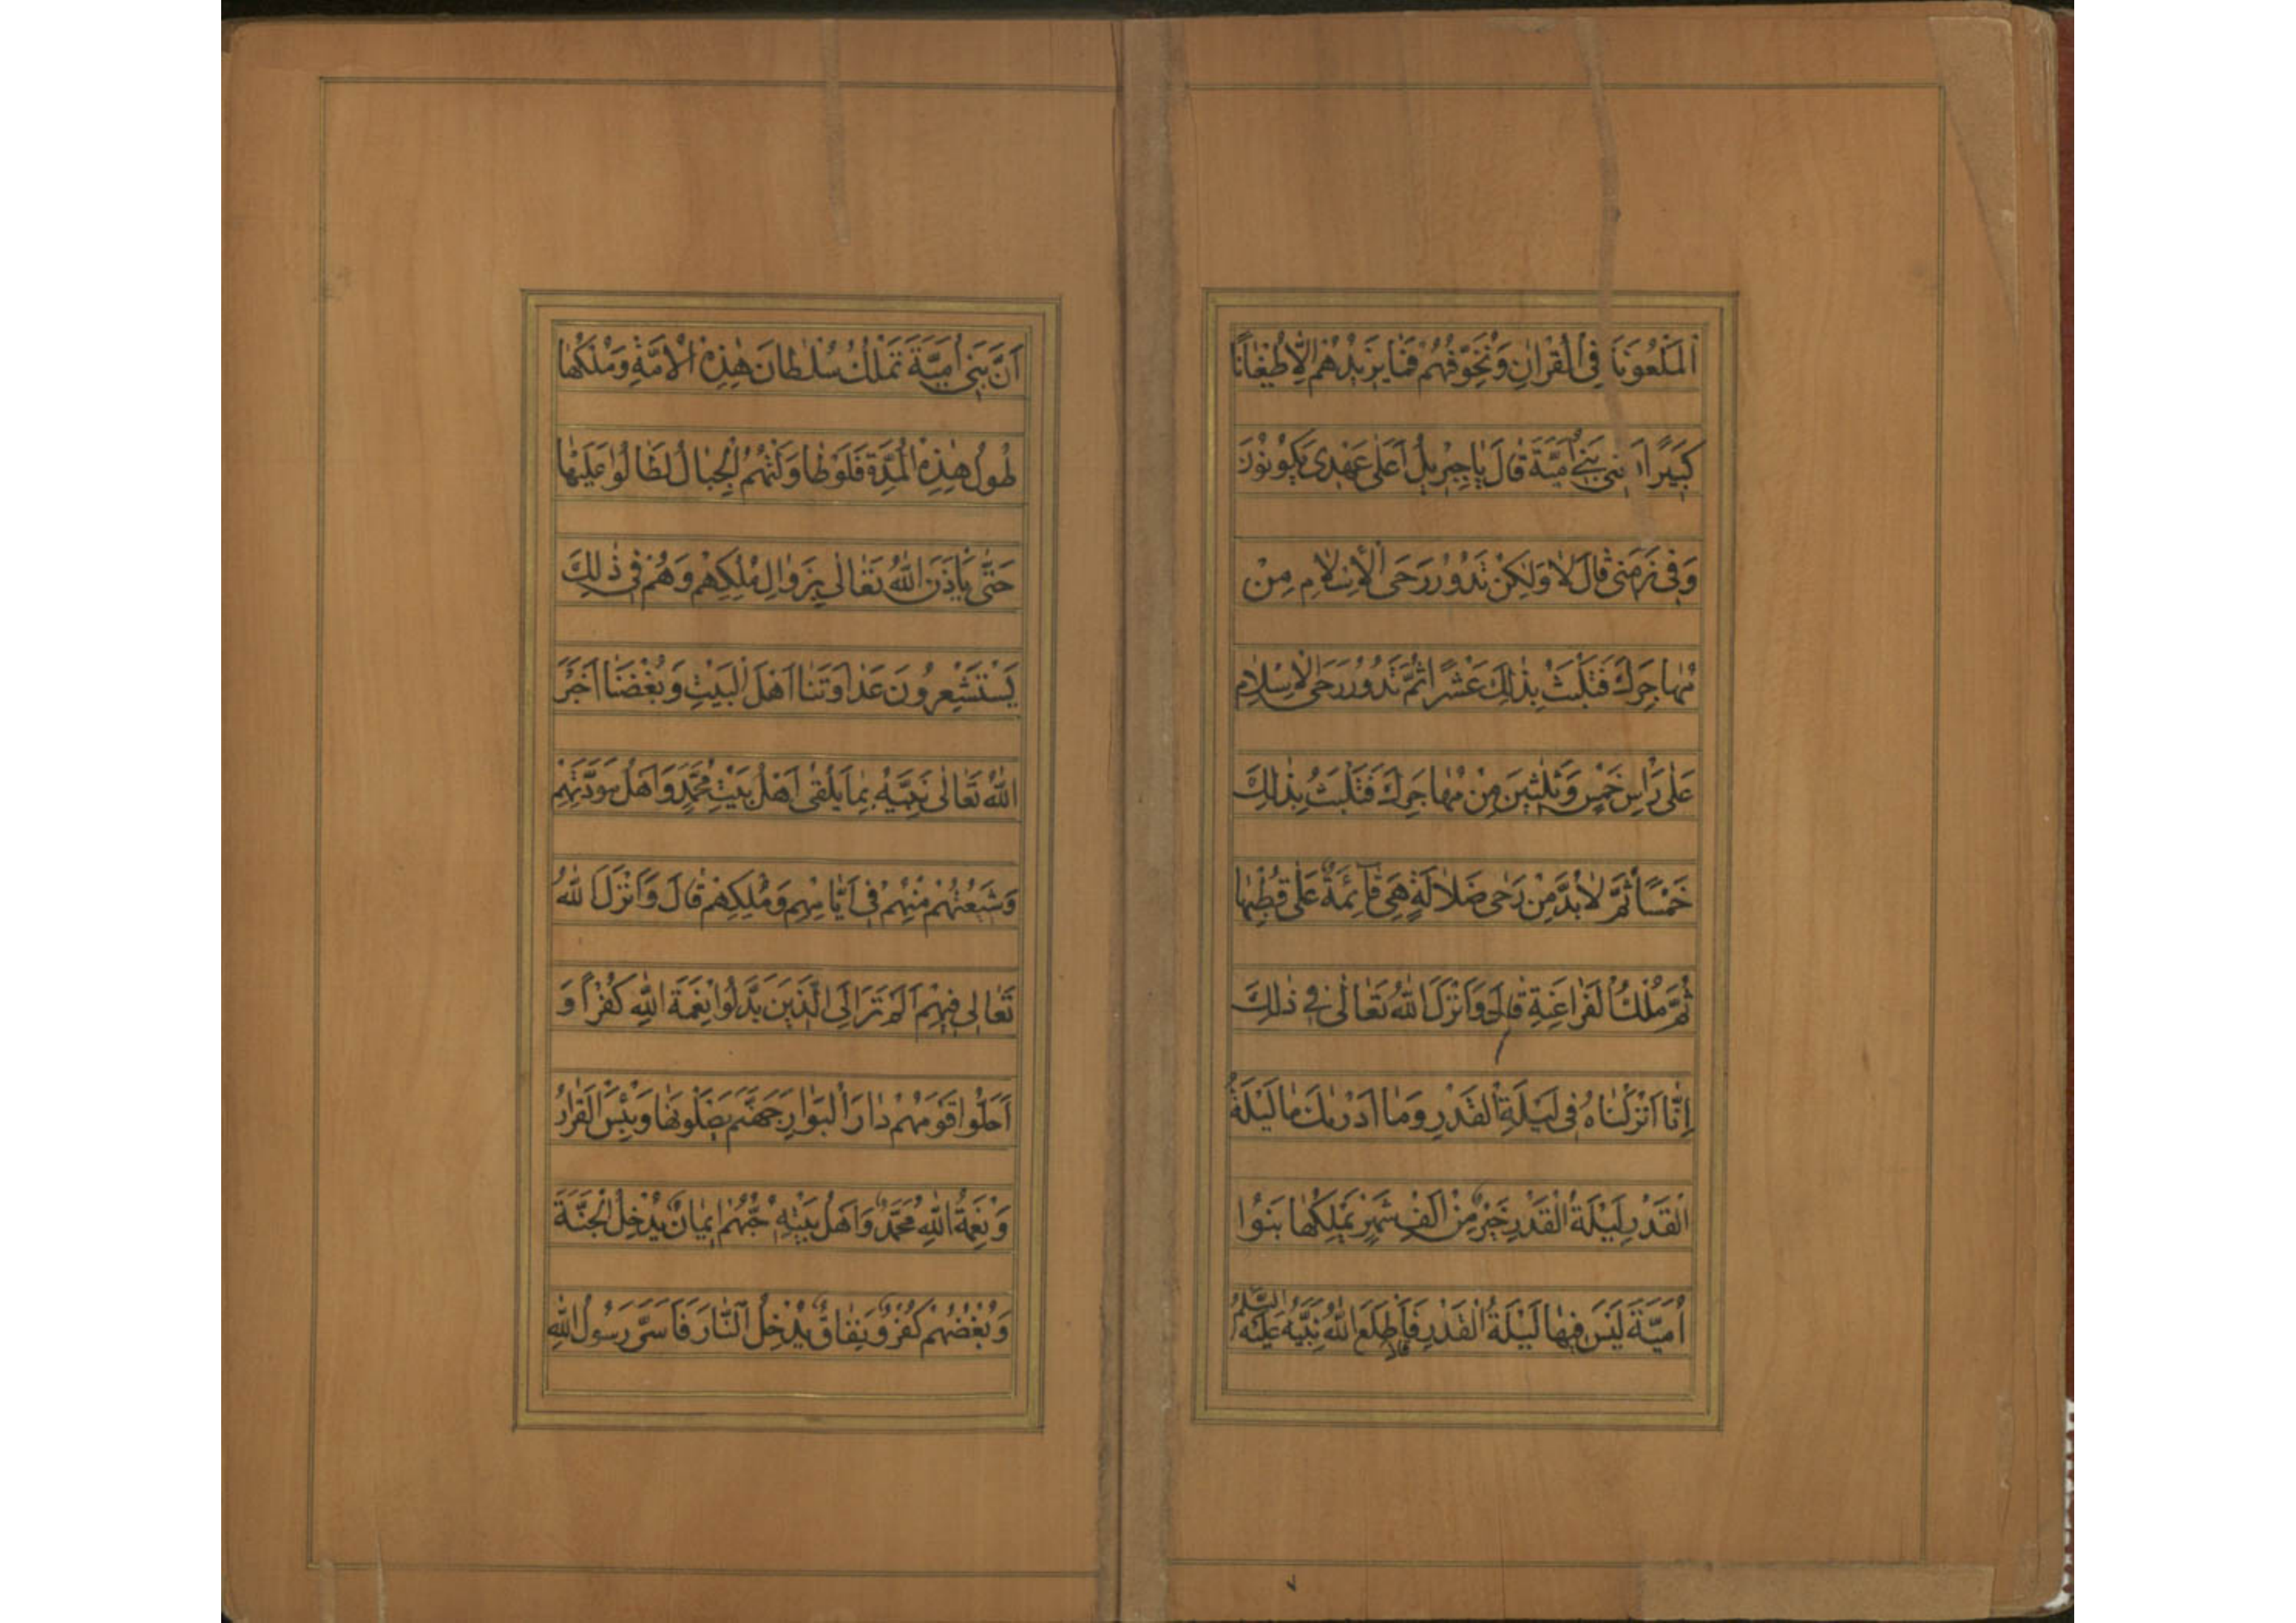 اَلْمَلْعُونَةَ فِي الْقُرْاٰنِ وَنُخَوِّفُهُمْ فَمَا يَزِيدُهُمْ اِلَّا طُغْيَانًا
كَبِيرًا يَعْنِي بَنِي اُمَيَّةَ قَالَ يَا جِبْرِيلُ اَعَلٰى عَهْدِي يَكُونُونَ
وَفِي زَمَنِي قَالَ لَا وَلٰكِنْ تَدُورُ رَحَى الْاِسْلَامِ مِنْ
مُهَاجَرِكَ فَتَلْبَثُ بِذٰلِكَ عَشْرًا ثُمَّ تَدُورُ رَحَى الْاِسْلَامِ
عَلٰى رَاْسِ خَمْسٍ وَثَلٰثِينَ مِنْ مُهَاجَرِكَ فَتَلْبَثُ بِذٰلِكَ
خَمْسًا ثُمَّ لَا بُدَّ مِنْ رَحٰى ضَلَالَةٍ هِيَ قَائِمَةٌ عَلٰى قُطْبِهَا
ثُمَّ مُلْكُ الْفَرَاعِنَةِ قَالَ وَاَنْزَلَ اللّٰهُ تَعَالٰى فِي ذٰلِكَ
اِنَّا اَنْزَلْنَاهُ فِي لَيْلَةِ الْقَدْرِ وَمَا اَدْرٰىكَ مَا لَيْلَةُ
الْقَدْرِ لَيْلَةُ الْقَدْرِ خَيْرٌ مِنْ اَلْفِ شَهْرٍ يَمْلِكُهَا بَنُوا
اُمَيَّةَ لَيْسَ فِيهَا لَيْلَةُ الْقَدْرِ قَالَ فَاَطْلَعَ اللّٰهُ نَبِيَّهُ عَلَيْهِ السَّلَمُ
اَنَّ بَنِي اُمَيَّةَ تَمْلِكُ سُلْطَانَ هٰذِهِ الْاُمَّةِ وَمُلْكَهَا
طُولُ هٰذِهِ الْمُدَّةِ فَلَوْ طَاوَلَتْهُمُ الْجِبَالُ لَطَالُوا عَلَيْهَا
حَتّٰى يَاْذَنَ اللّٰهُ تَعَالٰى بِزَوَالِ مُلْكِهِمْ وَهُمْ فِي ذٰلِكَ
يَسْتَشْعِرُونَ عَدَاوَتَنَا اَهْلَ الْبَيْتِ وَبُغْضَنَا اَخْبَرَ
اللّٰهُ تَعَالٰى نَبِيَّهُ بِمَا يَلْقٰى اَهْلُ بَيْتِ مُحَمَّدٍ وَاَهْلُ مَوَدَّتِهِمْ
وَشِيعَتُهُمْ مِنْهُمْ فِي اَيَّامِهِمْ وَمُلْكِهِمْ قَالَ وَاَنْزَلَ اللّٰهُ
تَعَالٰى فِيهِمْ اَلَمْ تَرَ اِلَى الَّذِينَ بَدَّلُوا نِعْمَةَ اللّٰهِ كُفْرًا وَ
اَحَلُّوا قَوْمَهُمْ دَارَ الْبَوَارِ جَهَنَّمَ يَصْلَوْنَهَا وَبِئْسَ الْقَرَارُ
وَنِعْمَةُ اللّٰهِ مُحَمَّدٌ وَاَهْلُ بَيْتِهِ حُبُّهُمْ اِيمَانٌ يُدْخِلُ الْجَنَّةَ
وَبُغْضُهُمْ كُفْرٌ وَنِفَاقٌ يُدْخِلُ النَّارَ فَاَسَرَّ رَسُولُ اللّٰهِ